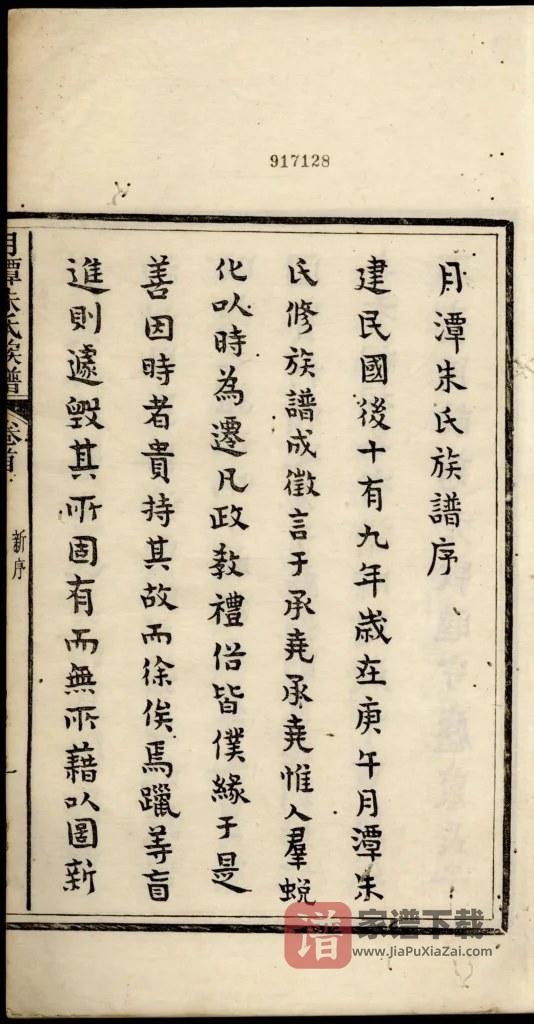 917128
月潭朱氏族譜序
建民國後十有九年歲在庚午月潭朱
氏修族譜成徵言于承堯承堯惟人羣蛻
化以時為遷凡政教禮俗皆僕緣于是
善因時者貴持其故而徐俟焉躐等盲
進則遽毀其所固有而無所藉以圖新
月潭朱氏族譜
卷首
新序
一
譜 家谱下载
www.JiaPuXiaZai.com